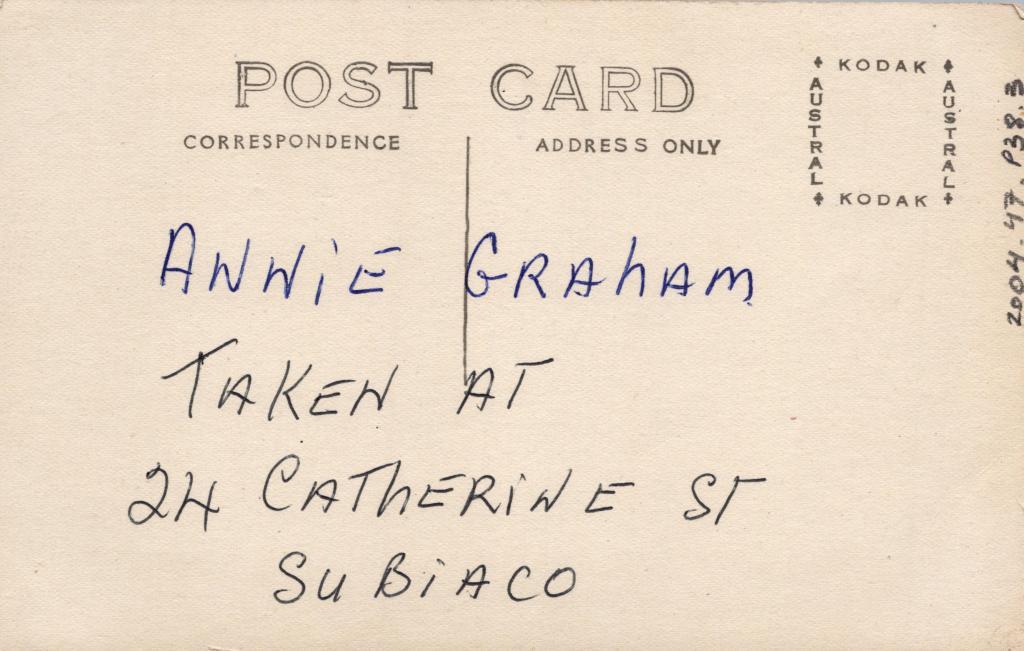 POST CARD
CORRESPONDENCE
ADDRESS ONLY
KODAK
AUSTRAL
AUSTRAL
KODAK
ANNiE GRAhAM
TAKEN AT
24 CAThERiNE ST
SUBiACO
2004.47.P38.3